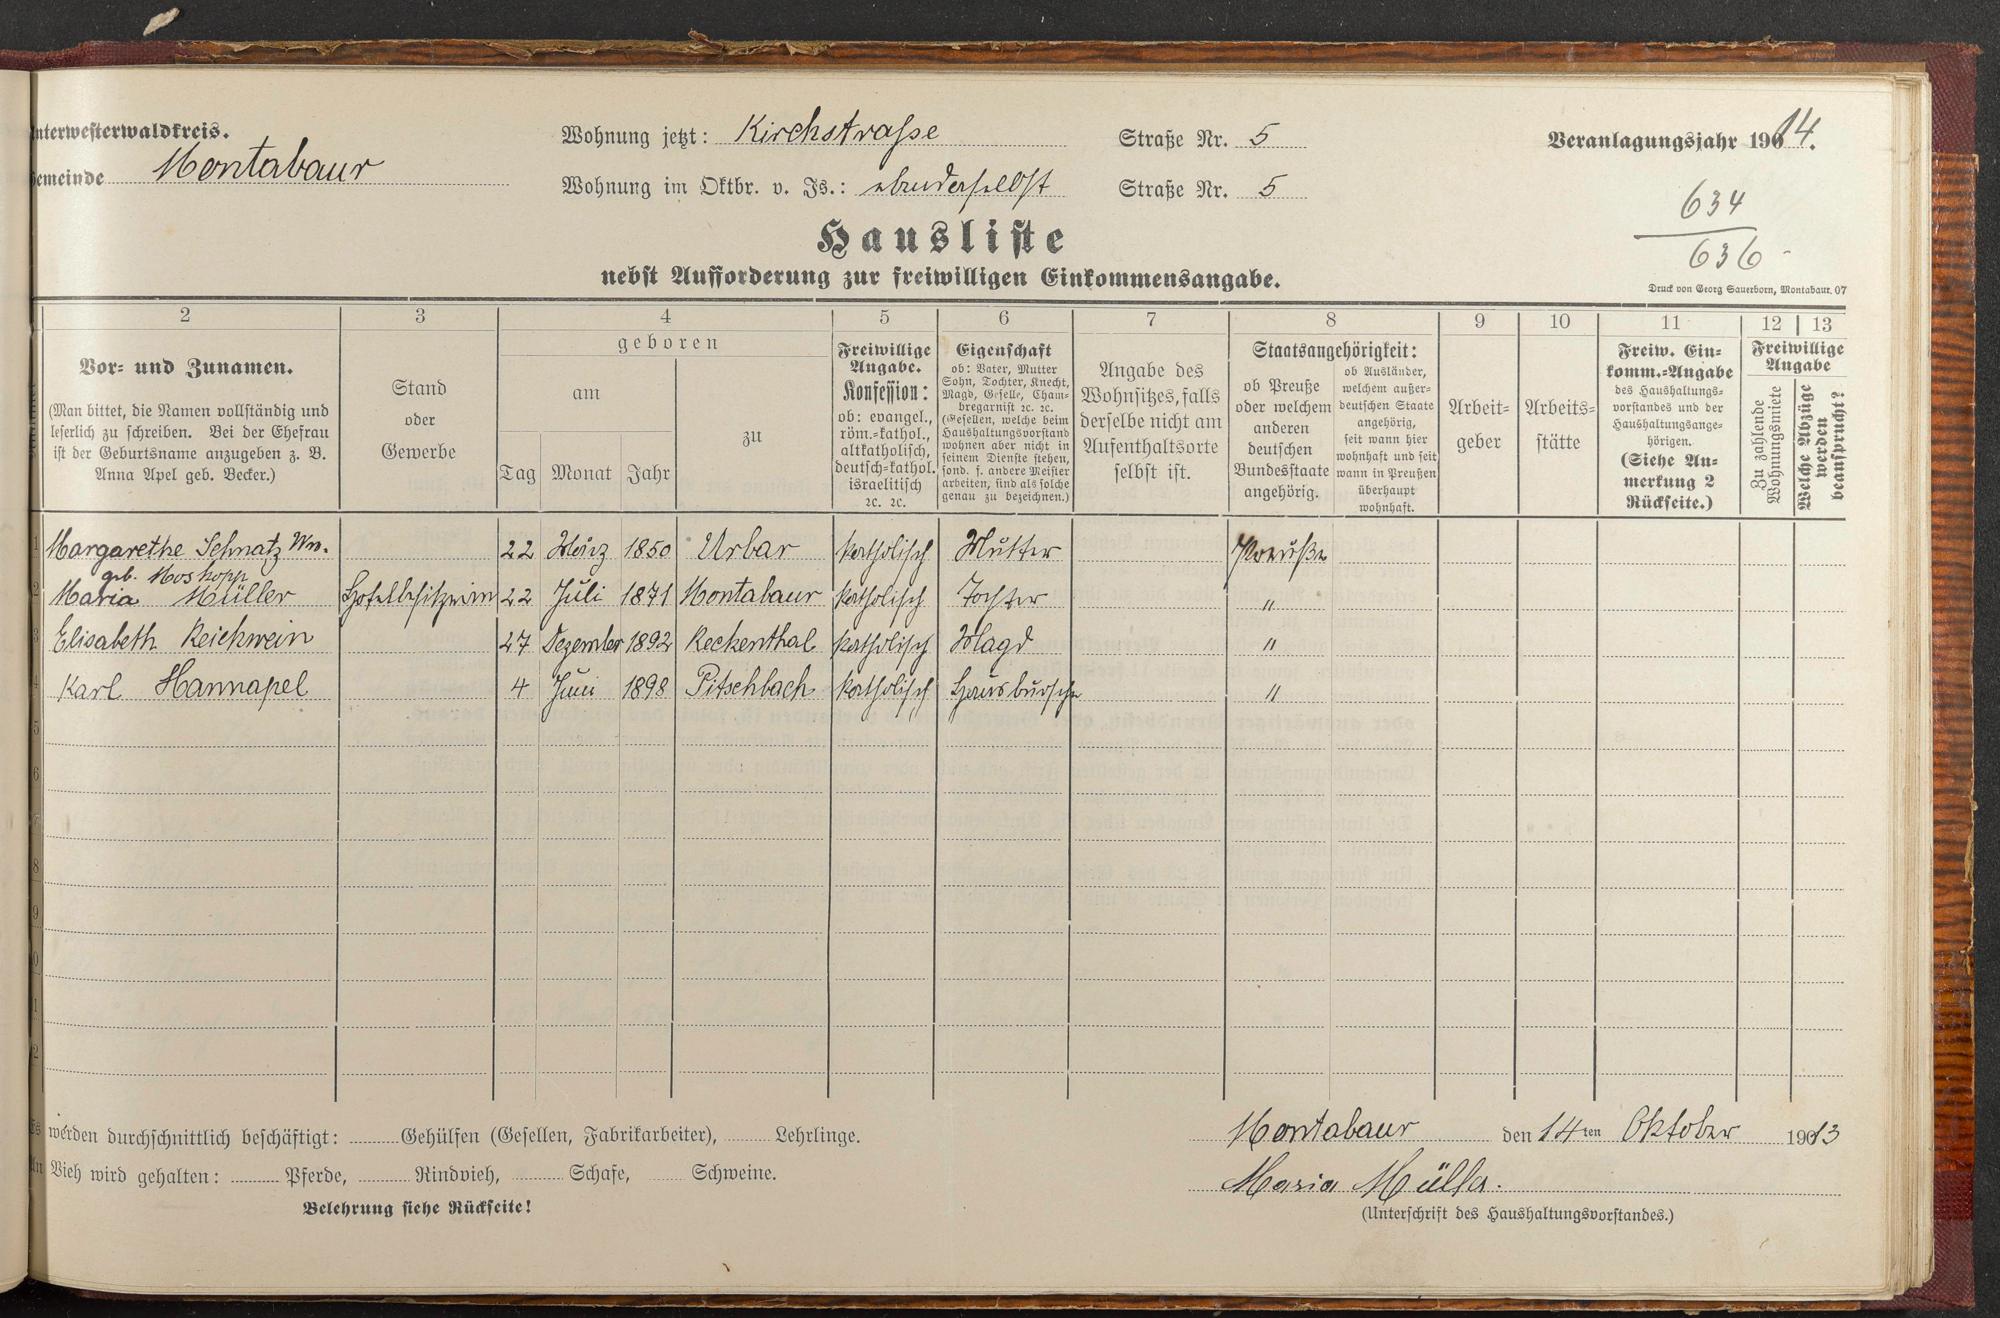 nterwesterwaldkreis.
emeinde Montabaur
Wohnung jetzt: Kirchstraße Straße Nr. 5
Wohnung im Oktbr. v. Js.: ebendaselbst Straße Nr. 5
Veranlagungsjahr 1914.
634
636
Hausliste
nebst Aufforderung zur freiwilligen Einkommensangabe.
Druck von Georg Sauerborn, Montabaur. 07
2
Vor- und Zunamen.
(Man bittet, die Namen vollständig und
leserlich zu schreiben. Bei der Ehefrau
ist der Geburtsname anzugeben z. B.
Anna Apel geb. Becker.)
3
Stand
oder
Gewerbe
4
geboren
am
zu
Tag Monat Jahr
5
Freiwillige
Angabe.
Konfession:
ob: evangel.,
röm.-kathol.,
altkatholisch,
deutsch-kathol.
israelitisch
2c. 2c.
6
Eigenschaft
ob: Vater, Mutter
Sohn, Tochter, Knecht,
Magd, Geselle, Cham-
bregarnist 2c. 2c.
(Gesellen, welche beim
Haushaltungsvorstand
wohnen aber nicht in
seinem Dienste stehen,
sond. f. andere Meister
arbeiten, sind als solche
genau zu bezeichnen.)
7
Angabe des
Wohnsitzes, falls
derselbe nicht am
Aufenthaltsorte
selbst ist.
8
Staatsangehörigkeit:
ob Preuße
oder welchem
anderen
deutschen
Bundesstaate
angehörig.
ob Ausländer,
welchem außer-
deutschen Staate
angehörig,
seit wann hier
wohnhaft und seit
wann in Preußen
überhaupt
wohnhaft.
9
Arbeit-
geber
10
Arbeits-
stätte
11
Freiw. Ein-
komm.-Angabe
des Haushaltungs-
vorstandes und der
Haushaltungsange-
hörigen.
(Siehe An-
merkung 2
Rückseite.)
12 13
Freiwillige
Angabe
Zu zahlende
Wohnungsmiete
Welche Abzüge
werden
beansprucht?
1 Margarethe Schnatz Ww. 22 März 1850 Urbar katholisch Mutter Preuße
geb. Moskopp
2 Maria Müller Hotelbesitzerin 22 Juli 1871 Montabaur katholisch Tochter "
3 Elisabeth Reichwein 27 Dezember 1892 Reckenthal katholisch Magd "
4 Karl Hannapel 4 Juni 1898 Pitschbach katholisch Hausbursche "
5
6
7
8
9
0
1
2
Es werden durchschnittlich beschäftigt: Gehülfen (Gesellen, Fabrikarbeiter), Lehrlinge.
An Vieh wird gehalten: Pferde, Rindvieh, Schafe, Schweine.
Belehrung siehe Rückseite!
Montabaur den 14ten Oktober 1913
Maria Müller.
(Unterschrift des Haushaltungsvorstandes.)